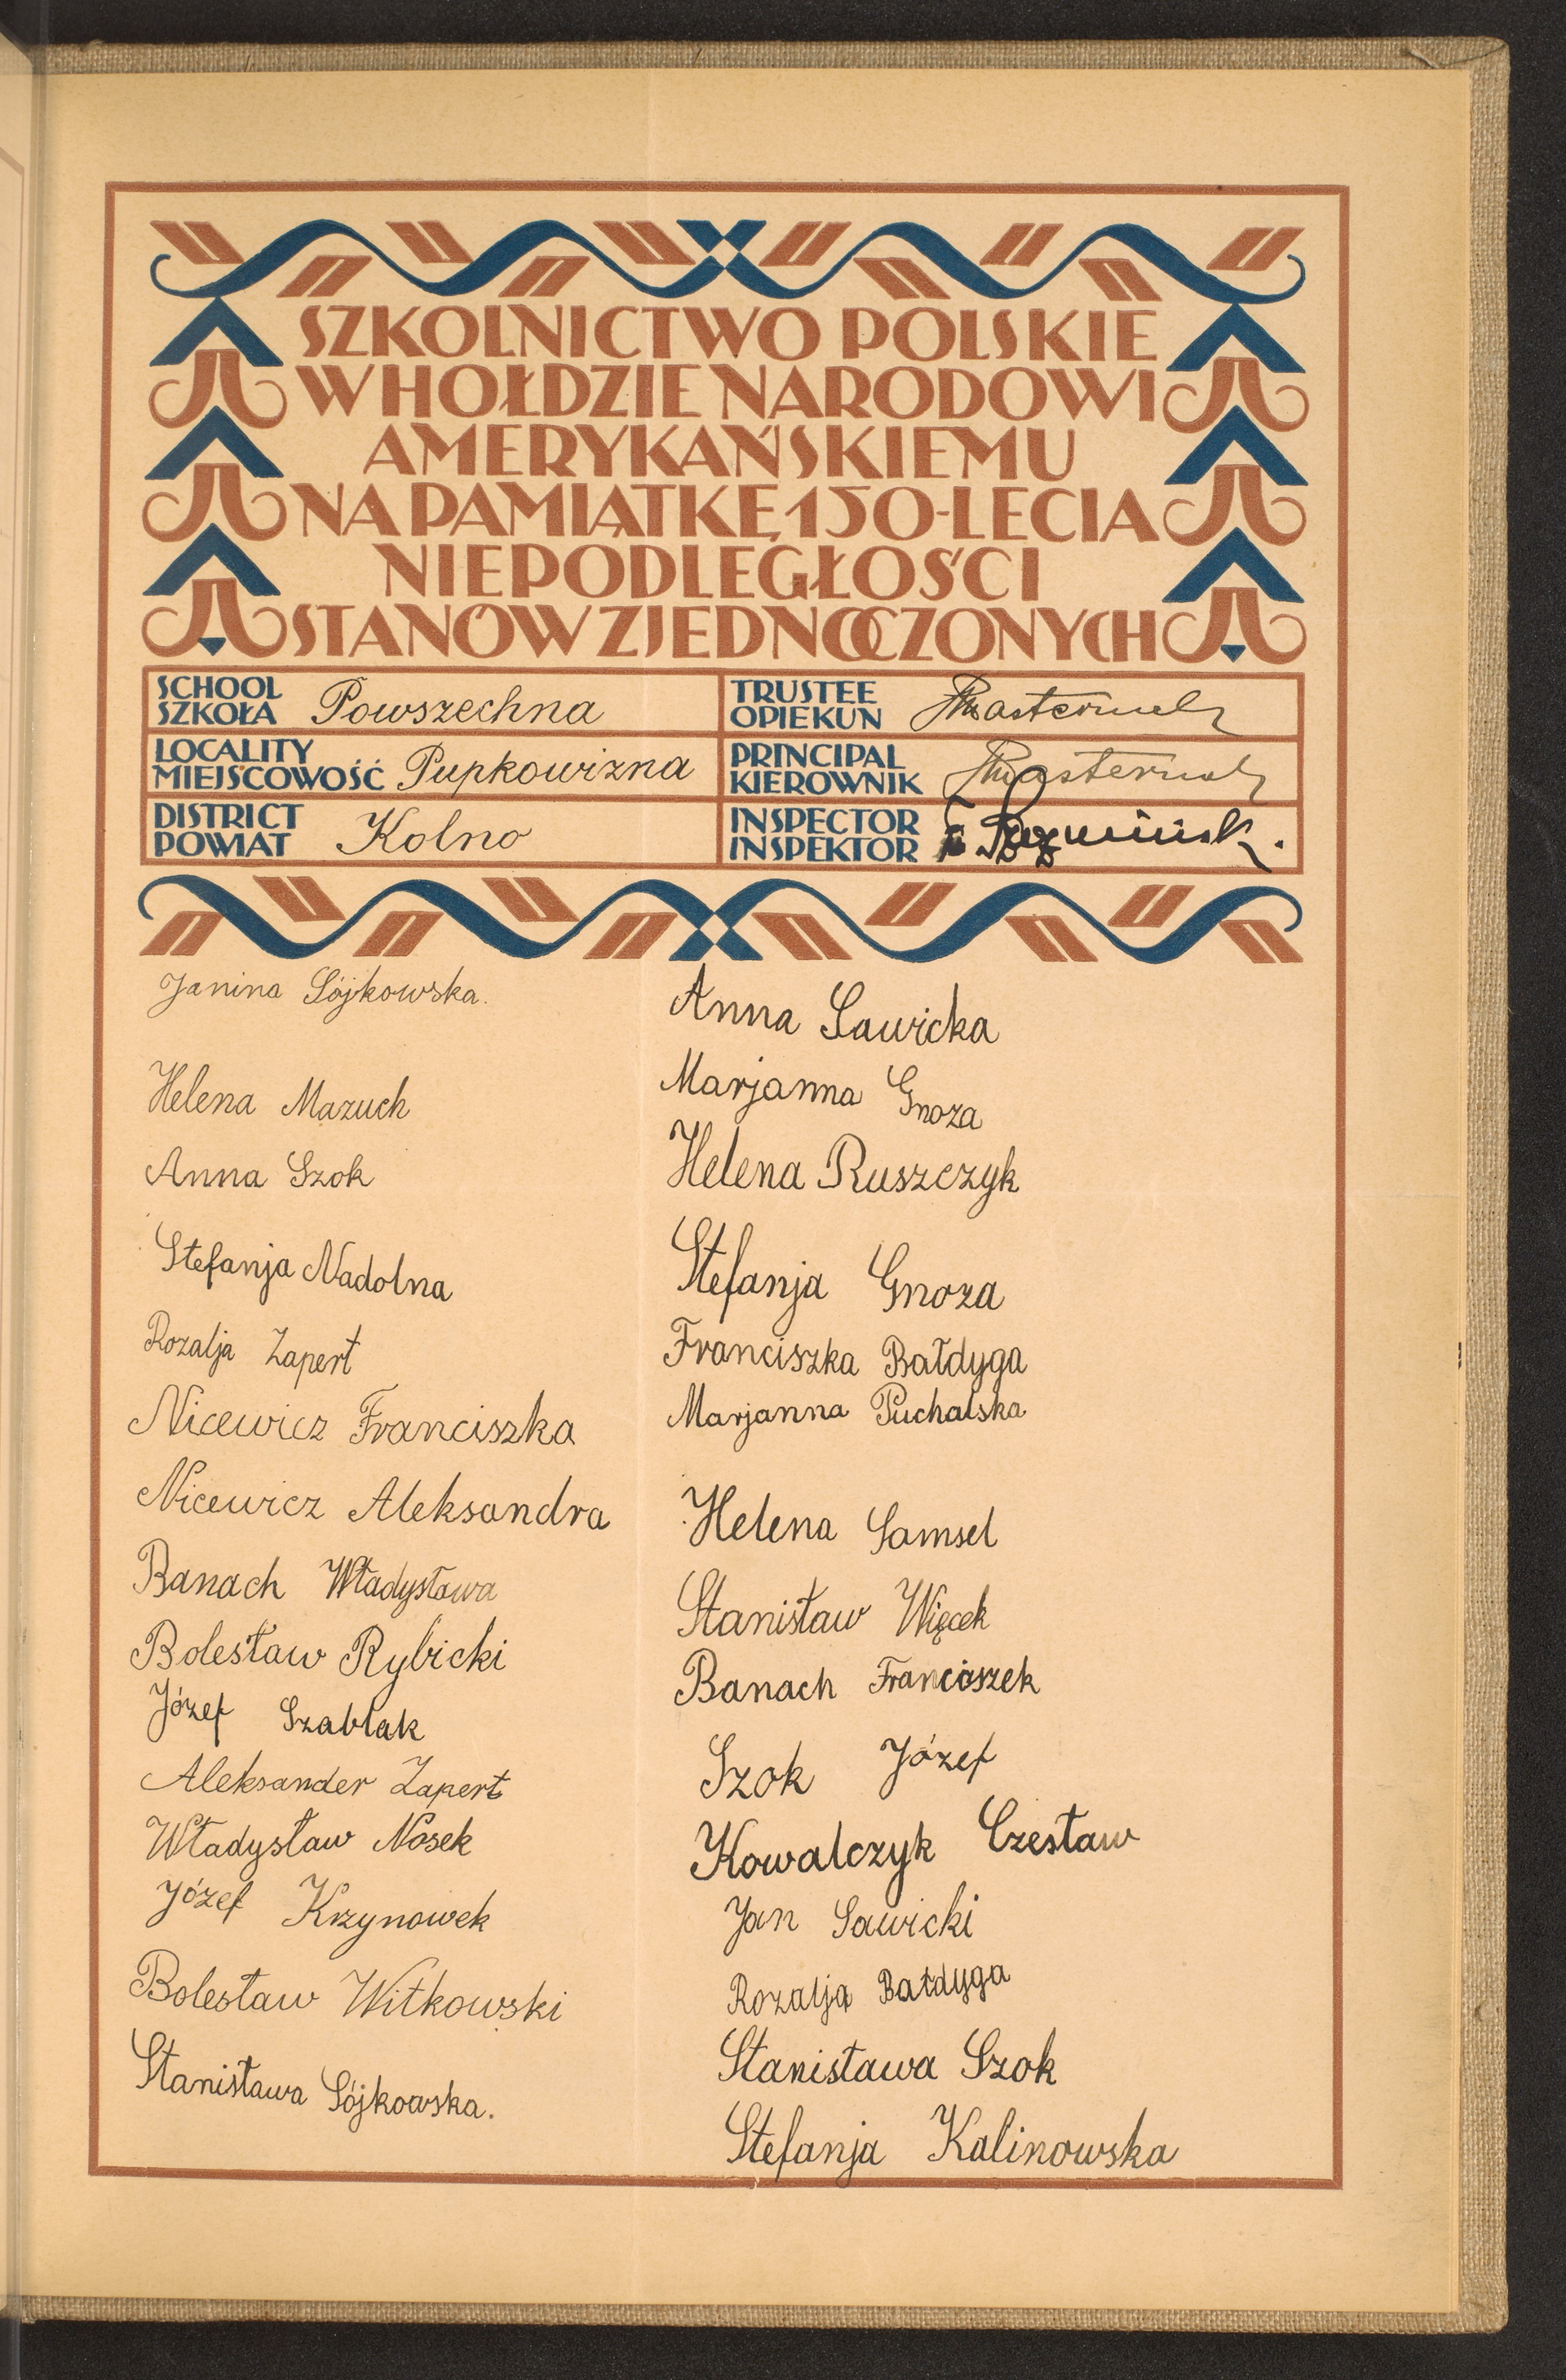 SZKOLNICTWO POLSKIE
W HOŁDZIE NARODOWI
AMERYKAŃSKIEMU
NA PAMIĄTKĘ 150-LECIA
NIEPODLEGŁOŚCI
STANÓW ZJEDNOCZONYCH
SCHOOL
SZKOŁA Powszechna
TRUSTEE
OPIEKUN
LOCALITY
MIEJSCOWOŚĆ Pupkowizna
PRINCIPAL
KIEROWNIK
DISTRICT
POWIAT Kolno
INSPECTOR
INSPEKTOR
Janina Sójkowska.
Helena Mazuch
Anna Szok
Stefanja Nadolna
Rozalja Zapert
Nicewicz Franciszka
Nicewicz Aleksandra
Banach Władysława
Bolesław Rybicki
Józef Szablak
Aleksander Zapert
Władysław Nosek
Józef Krzynowek
Bolesław Witkowski
Stanisława Sójkowska.
Anna Sawicka
Marjanna Gnoza
Helena Ruszczyk
Stefanja Gnoza
Franciszka Bałdyga
Marjanna Puchalska
Helena Samsel
Stanisław Więcek
Banach Franciszek
Szok Józef
Kowalczyk Czesław
Jan Sawicki
Rozalja Bałdyga
Stanisława Szok
Stefanja Kalinowska